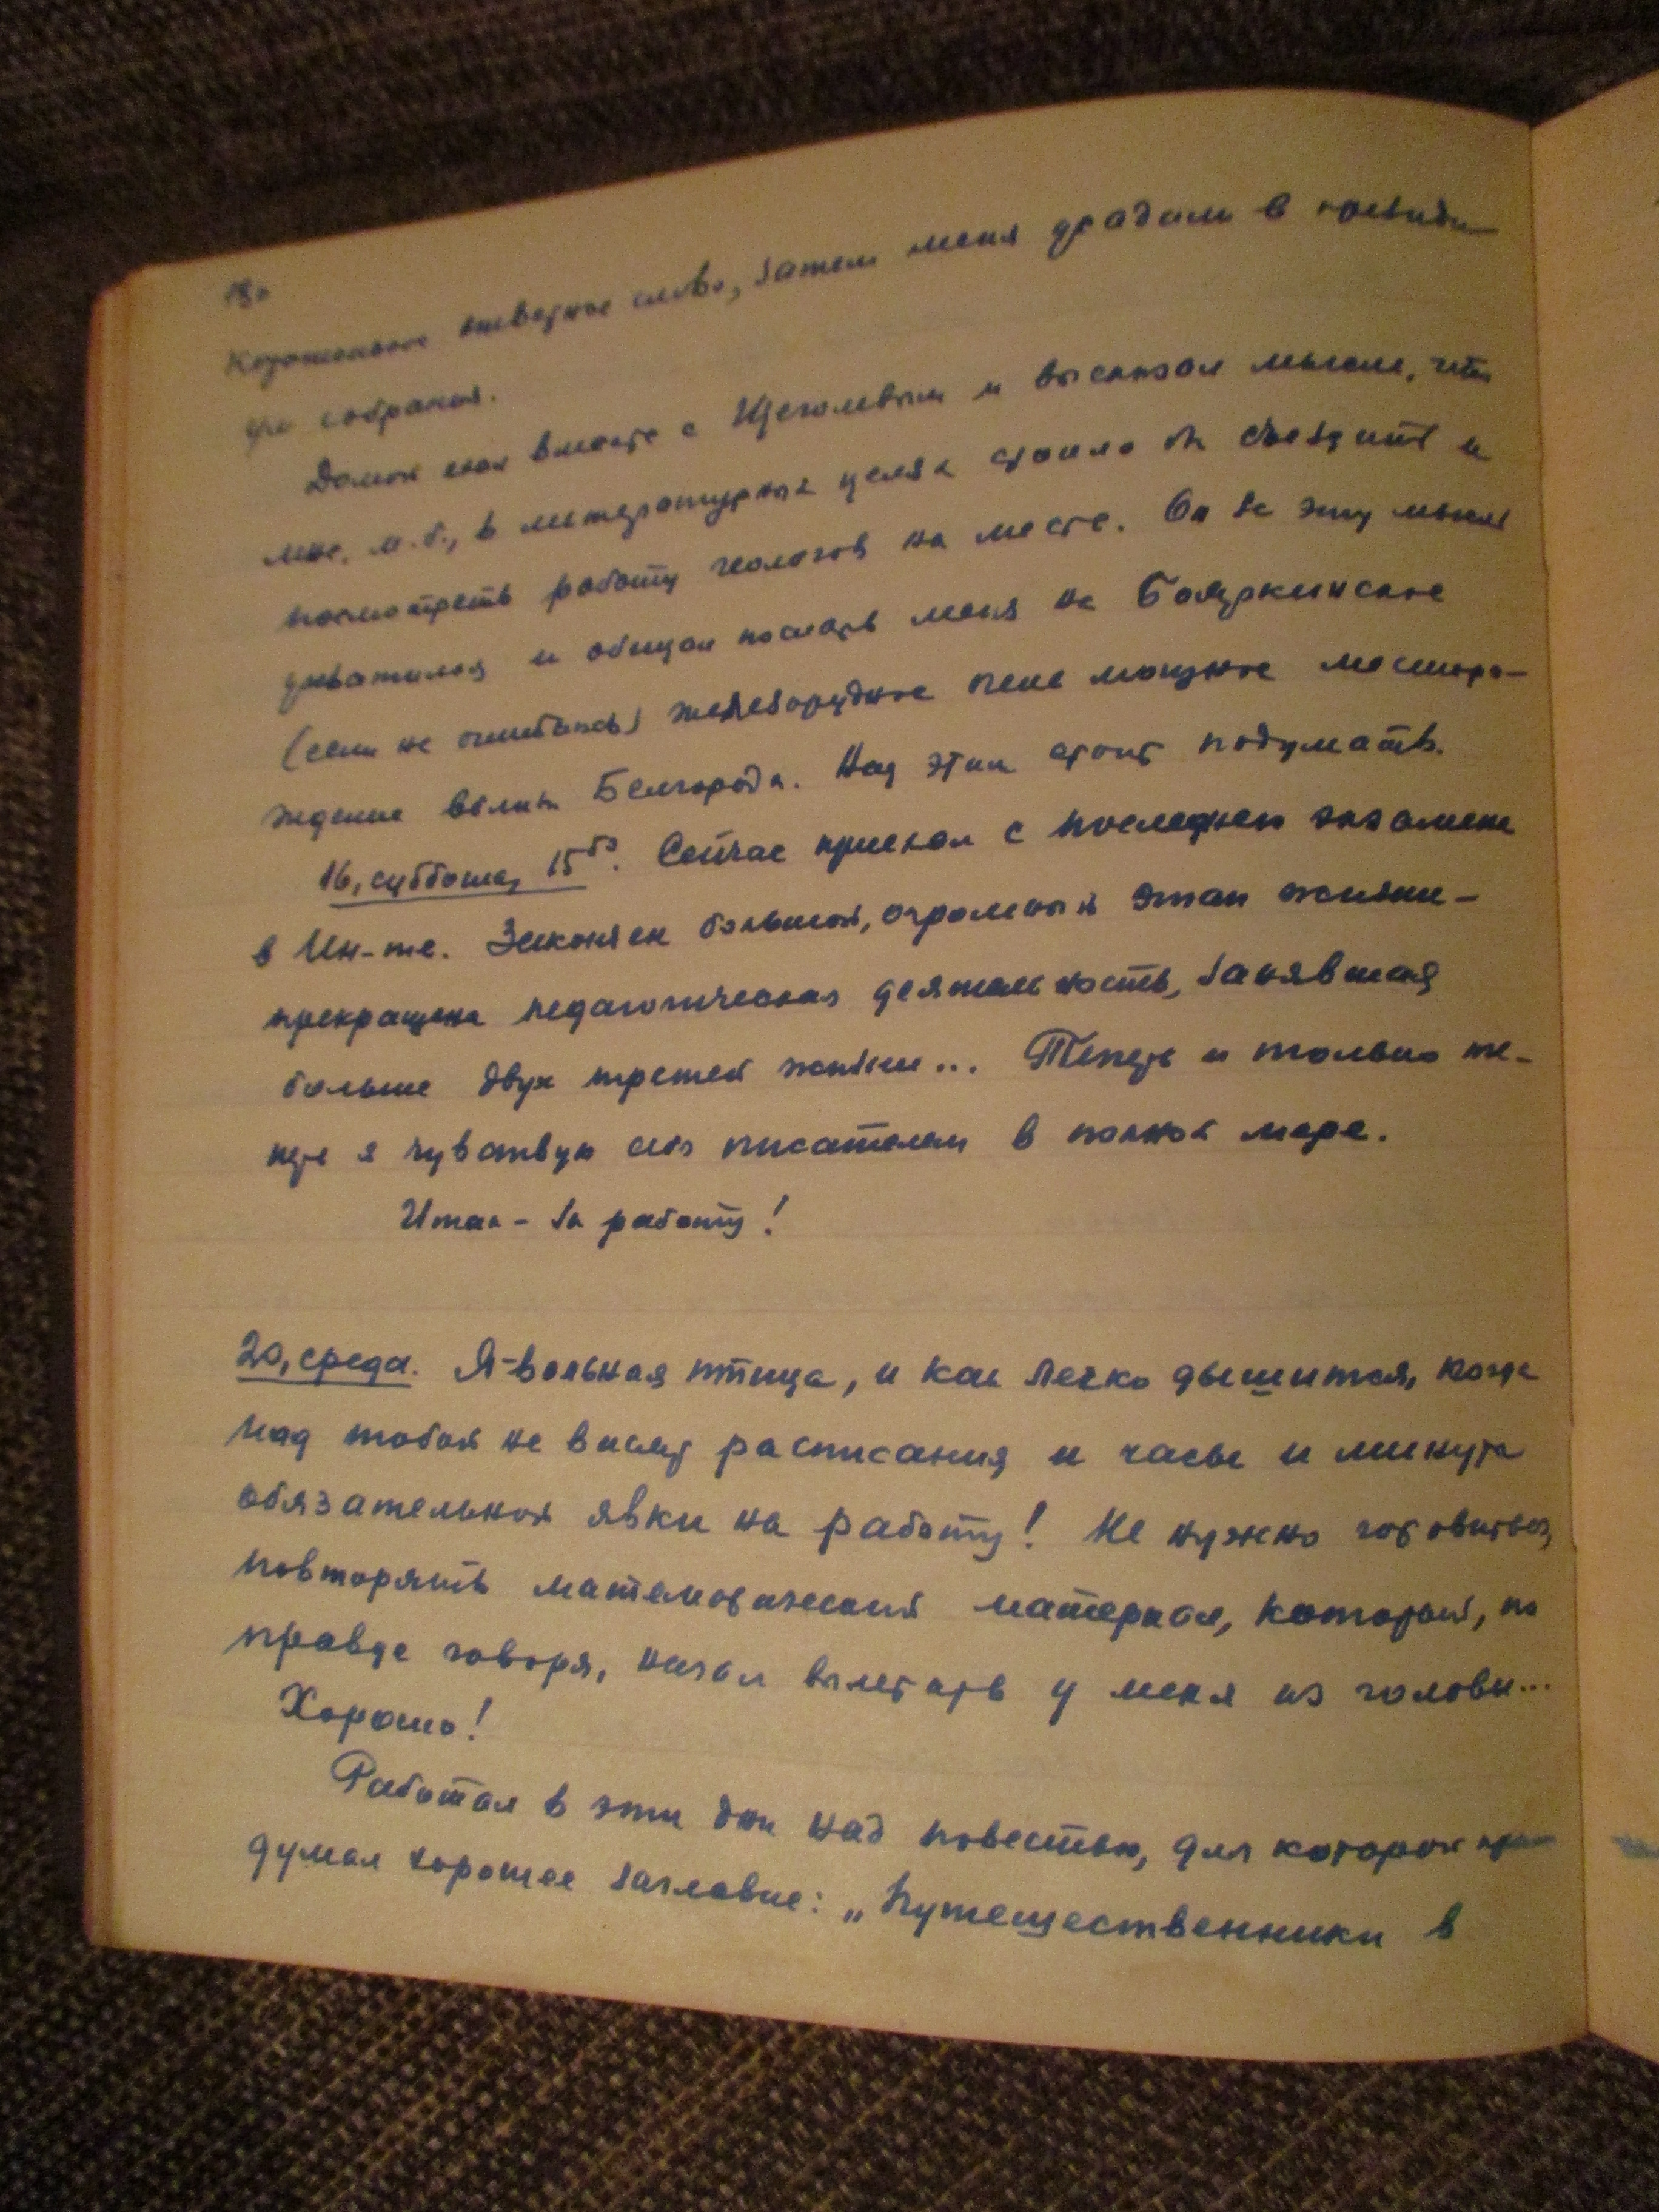 Коротенькое ответное слово, затем меня усадили в президи-
уме собрания.
Домой ехал вместе с Щеголевым и высказал мысль, что
мне, м.б., в литературных целях стоило бы съездить и
посмотреть работу геологов на месте. Он за эту мысль
ухватился и обещал послать меня на
(если не ошибаюсь) железорудное очень мощное месторо-
ждение вблизи Белгорода. Над этим стоит подумать.
16, суббота, 15. Сейчас приехал с последнего экзамена
в Ин-те. Закончен большой, огромный этап жизни -
прекращена педагогическая деятельность, занявшая
больше двух третей жизни... Теперь и только те-
перь я чувствую себя писателем в полной мере.
Итак - за работу!
20, среда. Я - вольная птица, и как легко дышится, когда
над тобой не висят расписания и часы и минуты
обязательной явки на работу! Не нужно готовиться,
повторять математический материал, который, по
правде говоря, начал вылетать у меня из головы...
Хорошо!
Работал в эти дни над повестью, для которой при-
думал хорошее заглавие: „Путешественники в